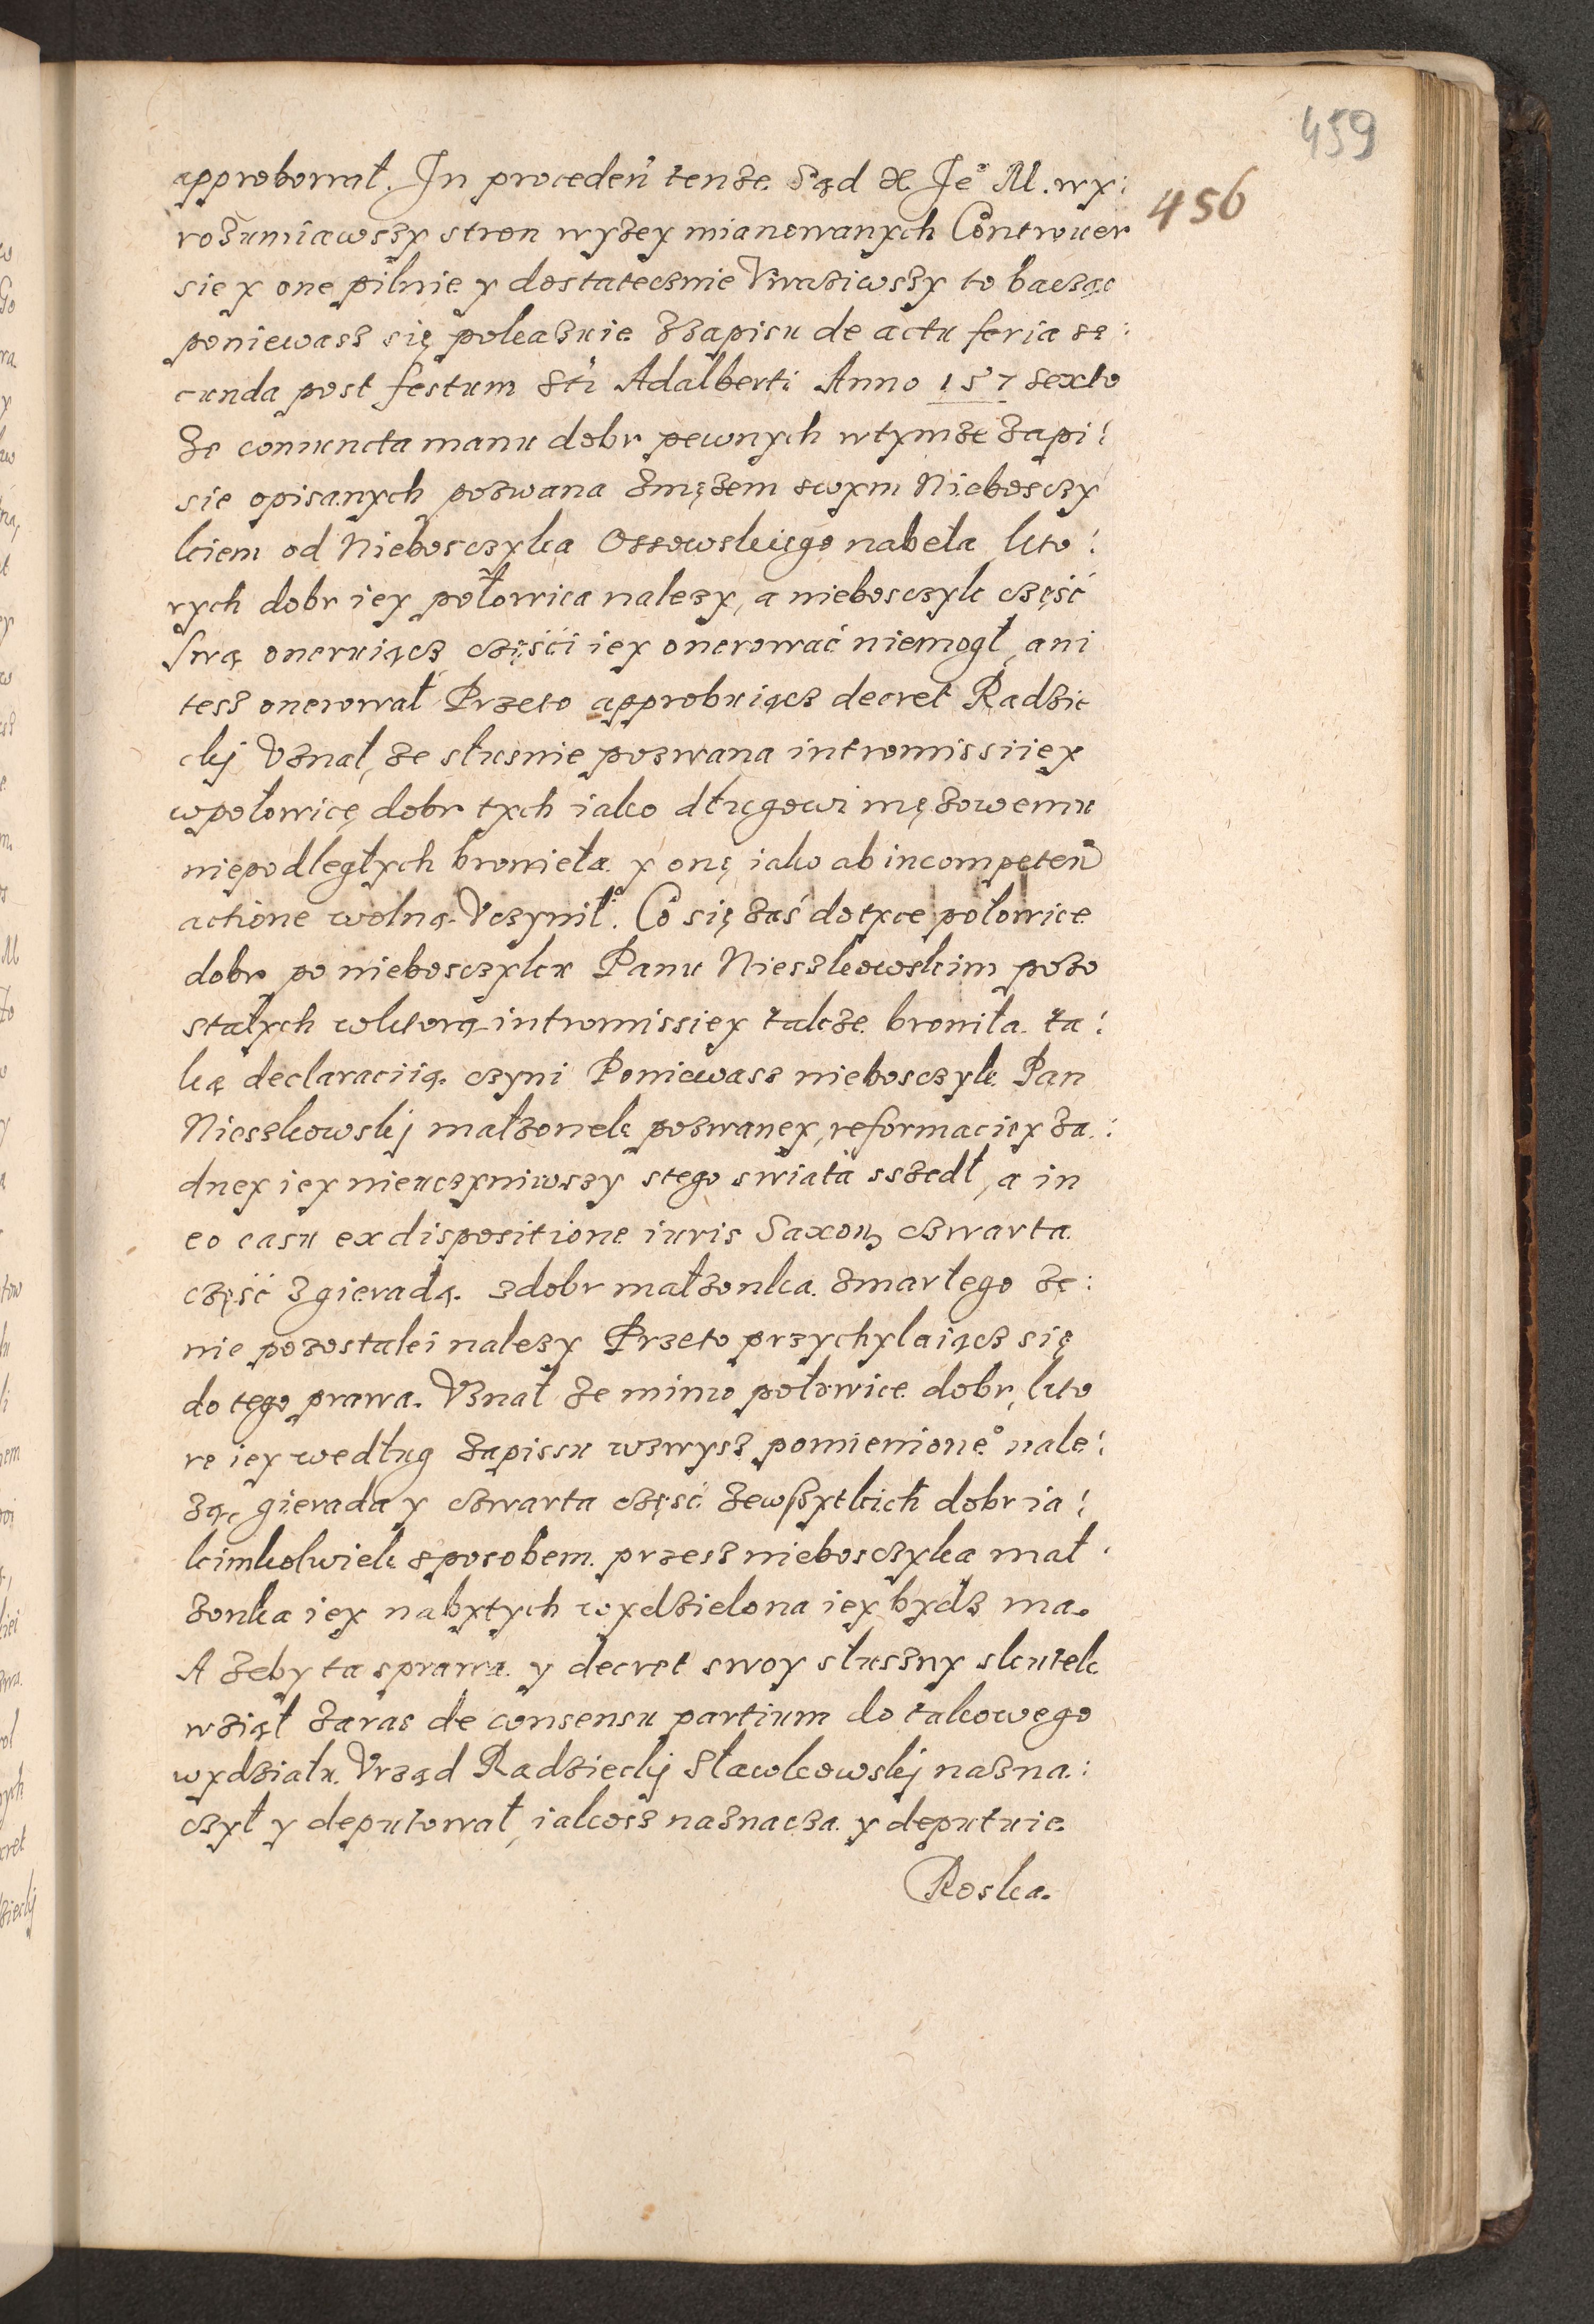 459
approbował. In proceden̄ tenże Sąd X. Je° M. wy:
456
rozumiawszy stron wyżey mianowanych Controuer
siey one pilnie y dostatecznie Vważiwszy to bacząc
poniewasz się pokazuie z zapisu de actu feria se:
cunda post festum Sti Adalberti Anno 157 sexto
że coniuncta manu dobr pewnych wtymże zapi:
sie opisanych pozwana zmężem swym Niebosczy
kiem od Niebosczyka Ossowskiego nabeła kto:
rych dobr iey połowica należy, a niebosczyk część
swą oneruiącz części iey onerować niemogł, ani
tesz onerował Przeto approbuiącz decret Radzie
cki Vznał, że słusnie pozwana intromissiiey
wpołowicę dobr tych iako długowi mężowemu
niepodległych bronieła y onę iako ab incompeten̄
actione wolną Vczynił. Co się zaś dotyce połowice
dobr po niebosczyku Panu Nieszkowskim pozo
stałych wktorą intromissiey także broniła ta:
ką declaraciią czyni Poniewasz niebosczyk Pan
Nieszkowskj małżonek pozwaney, reformaciey ża:
dney iey nieuczyniwszy stego swiata sszedł, a in
eo casu ex dispositione iuris Saxon̨ czwarta
część zgieradą zdobr małżonka zmarłego że:
nie pozostałei należy Przeto przychylaiącz się
do tego prawa. Vznał że mimo połowice dobr, kto
re iey według zapissu wzwysz pomienione° nale:
żą, gierada y czwarta część zewszytkich dobr ia:
kimkolwiek sposobem przesz niebosczyka mał:
żonka iey nabytych wydzielona iey bydz ma.
A żeby ta sprawa y decret swoy słuszny skutek
wziął zaras de consensu partium do takowego
wydziału Vrząd Radzieckj Sławkowskj nazna:
czył y deputował, iakosz naznacza y deputuie
Roska.